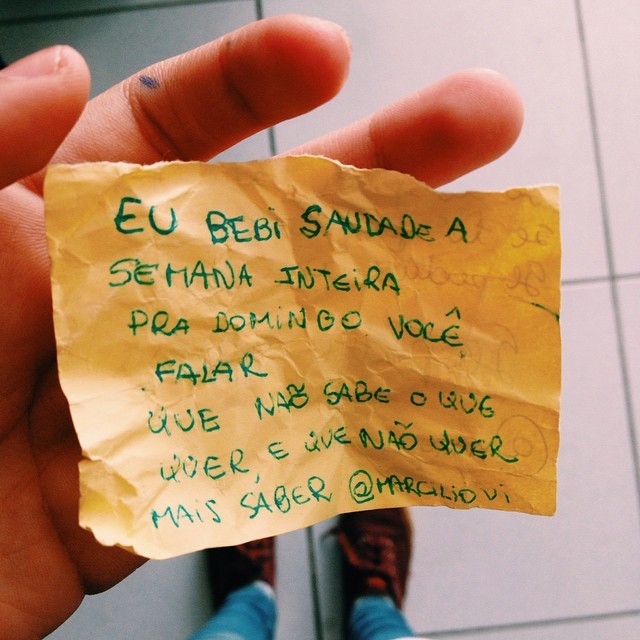 EU BEBI SAUDADE A
SEMANA INTEIRA
PRA DOMINGO VOCÊ
FALAR
QUE NÃO SABE O QUE
QUER, E QUE NÃO QUER
MAIS SABER @MARCILIOVI